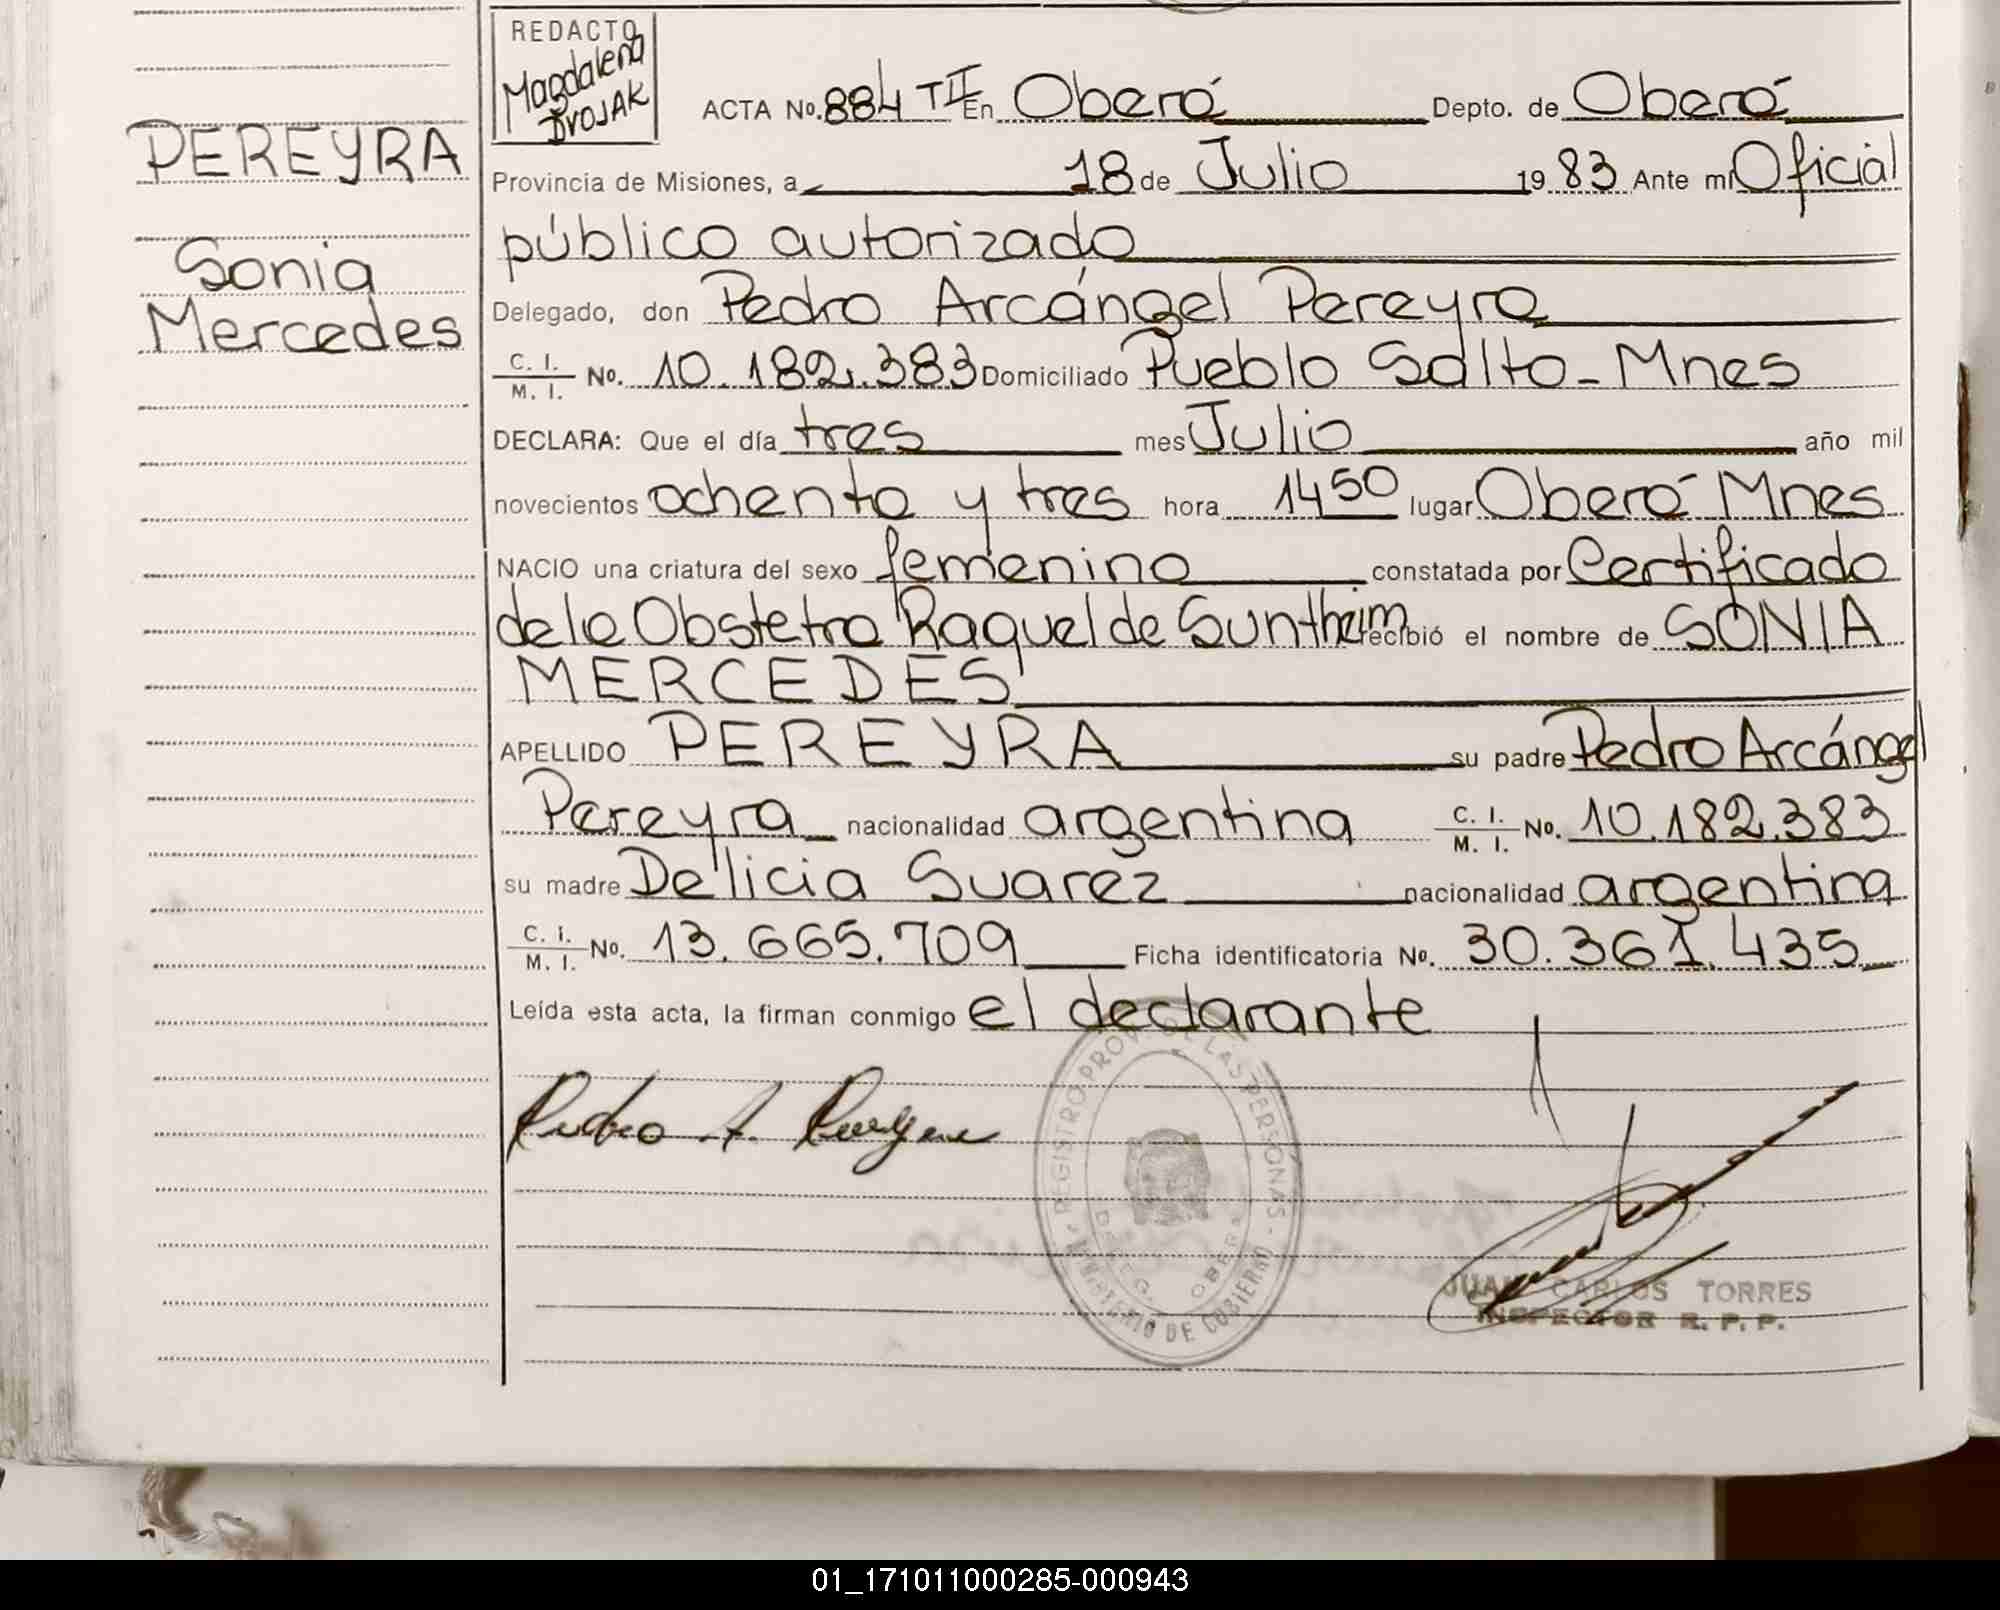 REDACTO
Magdalena
DVOJAK
PEREYRA
Sonia
Mercedes
ACTA No. 884 TII En Oberá Depto. de Oberá
Provincia de Misiones, a 18 de Julio 1983 Ante mi Oficial
público autorizado
Delegado, don Pedro Arcángel Pereyra
C. I. / M. I. No. 10.182.383 Domiciliado Pueblo Salto - Mnes
DECLARA: Que el día tres mes Julio año mil
novecientos ochenta y tres hora 14 50 lugar Oberá Mnes
NACIO una criatura del sexo femenino constatada por Certificado
de la Obstetra Raquel de Suntheim recibió el nombre de SONIA
MERCEDES
APELLIDO PEREYRA su padre Pedro Arcángel
Pereyra nacionalidad argentina C. I. / M. I. No. 10.182.383
su madre Delicia Suarez nacionalidad argentina
C. I. / M. I. No. 13.665.709 Ficha identificatoria No. 30.361.435
Leída esta acta, la firman conmigo el declarante
Pedro A. Pereyra
REGISTRO PROV. DE LAS PERSONAS - MINISTERIO DE GOBIERNO
DELEG. OBERA
JUAN CARLOS TORRES
INSPECTOR R. P. P.
01_171011000285-000943